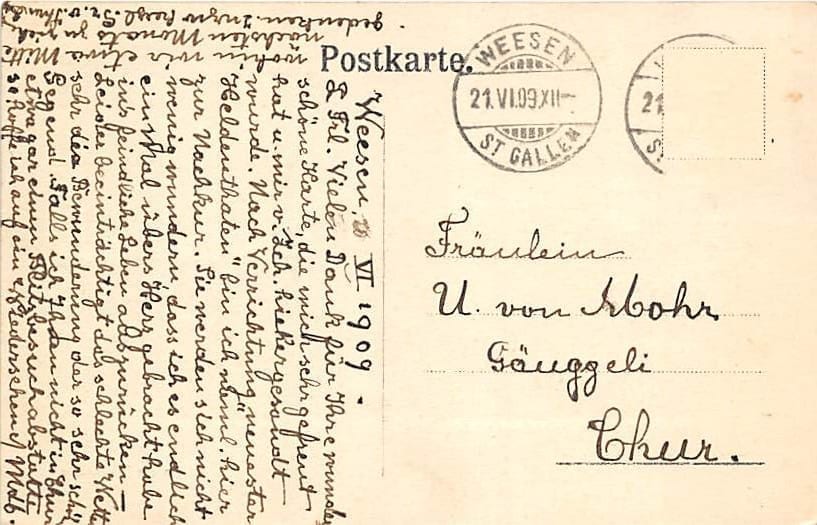 Postkarte.
WEESEN
21.VI.09.XII-
ST GALLEN
21
Fräulein
U. von Mohr
Gäuggeli
Chur.
Weesen, VI 1909.
L Frl. Vielen Dank für Ihre wunder
schöne Karte, die mich sehr gefreut
hat u. mir v. Zch. hieher gesandt
wurde. Nach Verrichtung neuester
"Heldenthaten" bin ich näml. hier
zur Nachkur. Sie werden sich nicht
wenig wundern, dass ich es endlich
einmal übers Herz gebracht habe
ins feindliche Leben abzurücken –
Leider beeinträchtigt das schlechte Wette
sehr die Bewunderung der so sehr schö
Gegend. Falls ich Ihnen nicht in Chur
etwa gar einen Blitzbesuch abstatte
so hoffe ich auf ein Wiedersehen
wohin wir etwa Mitte
nächsten Monats zu zieh
gedenken.